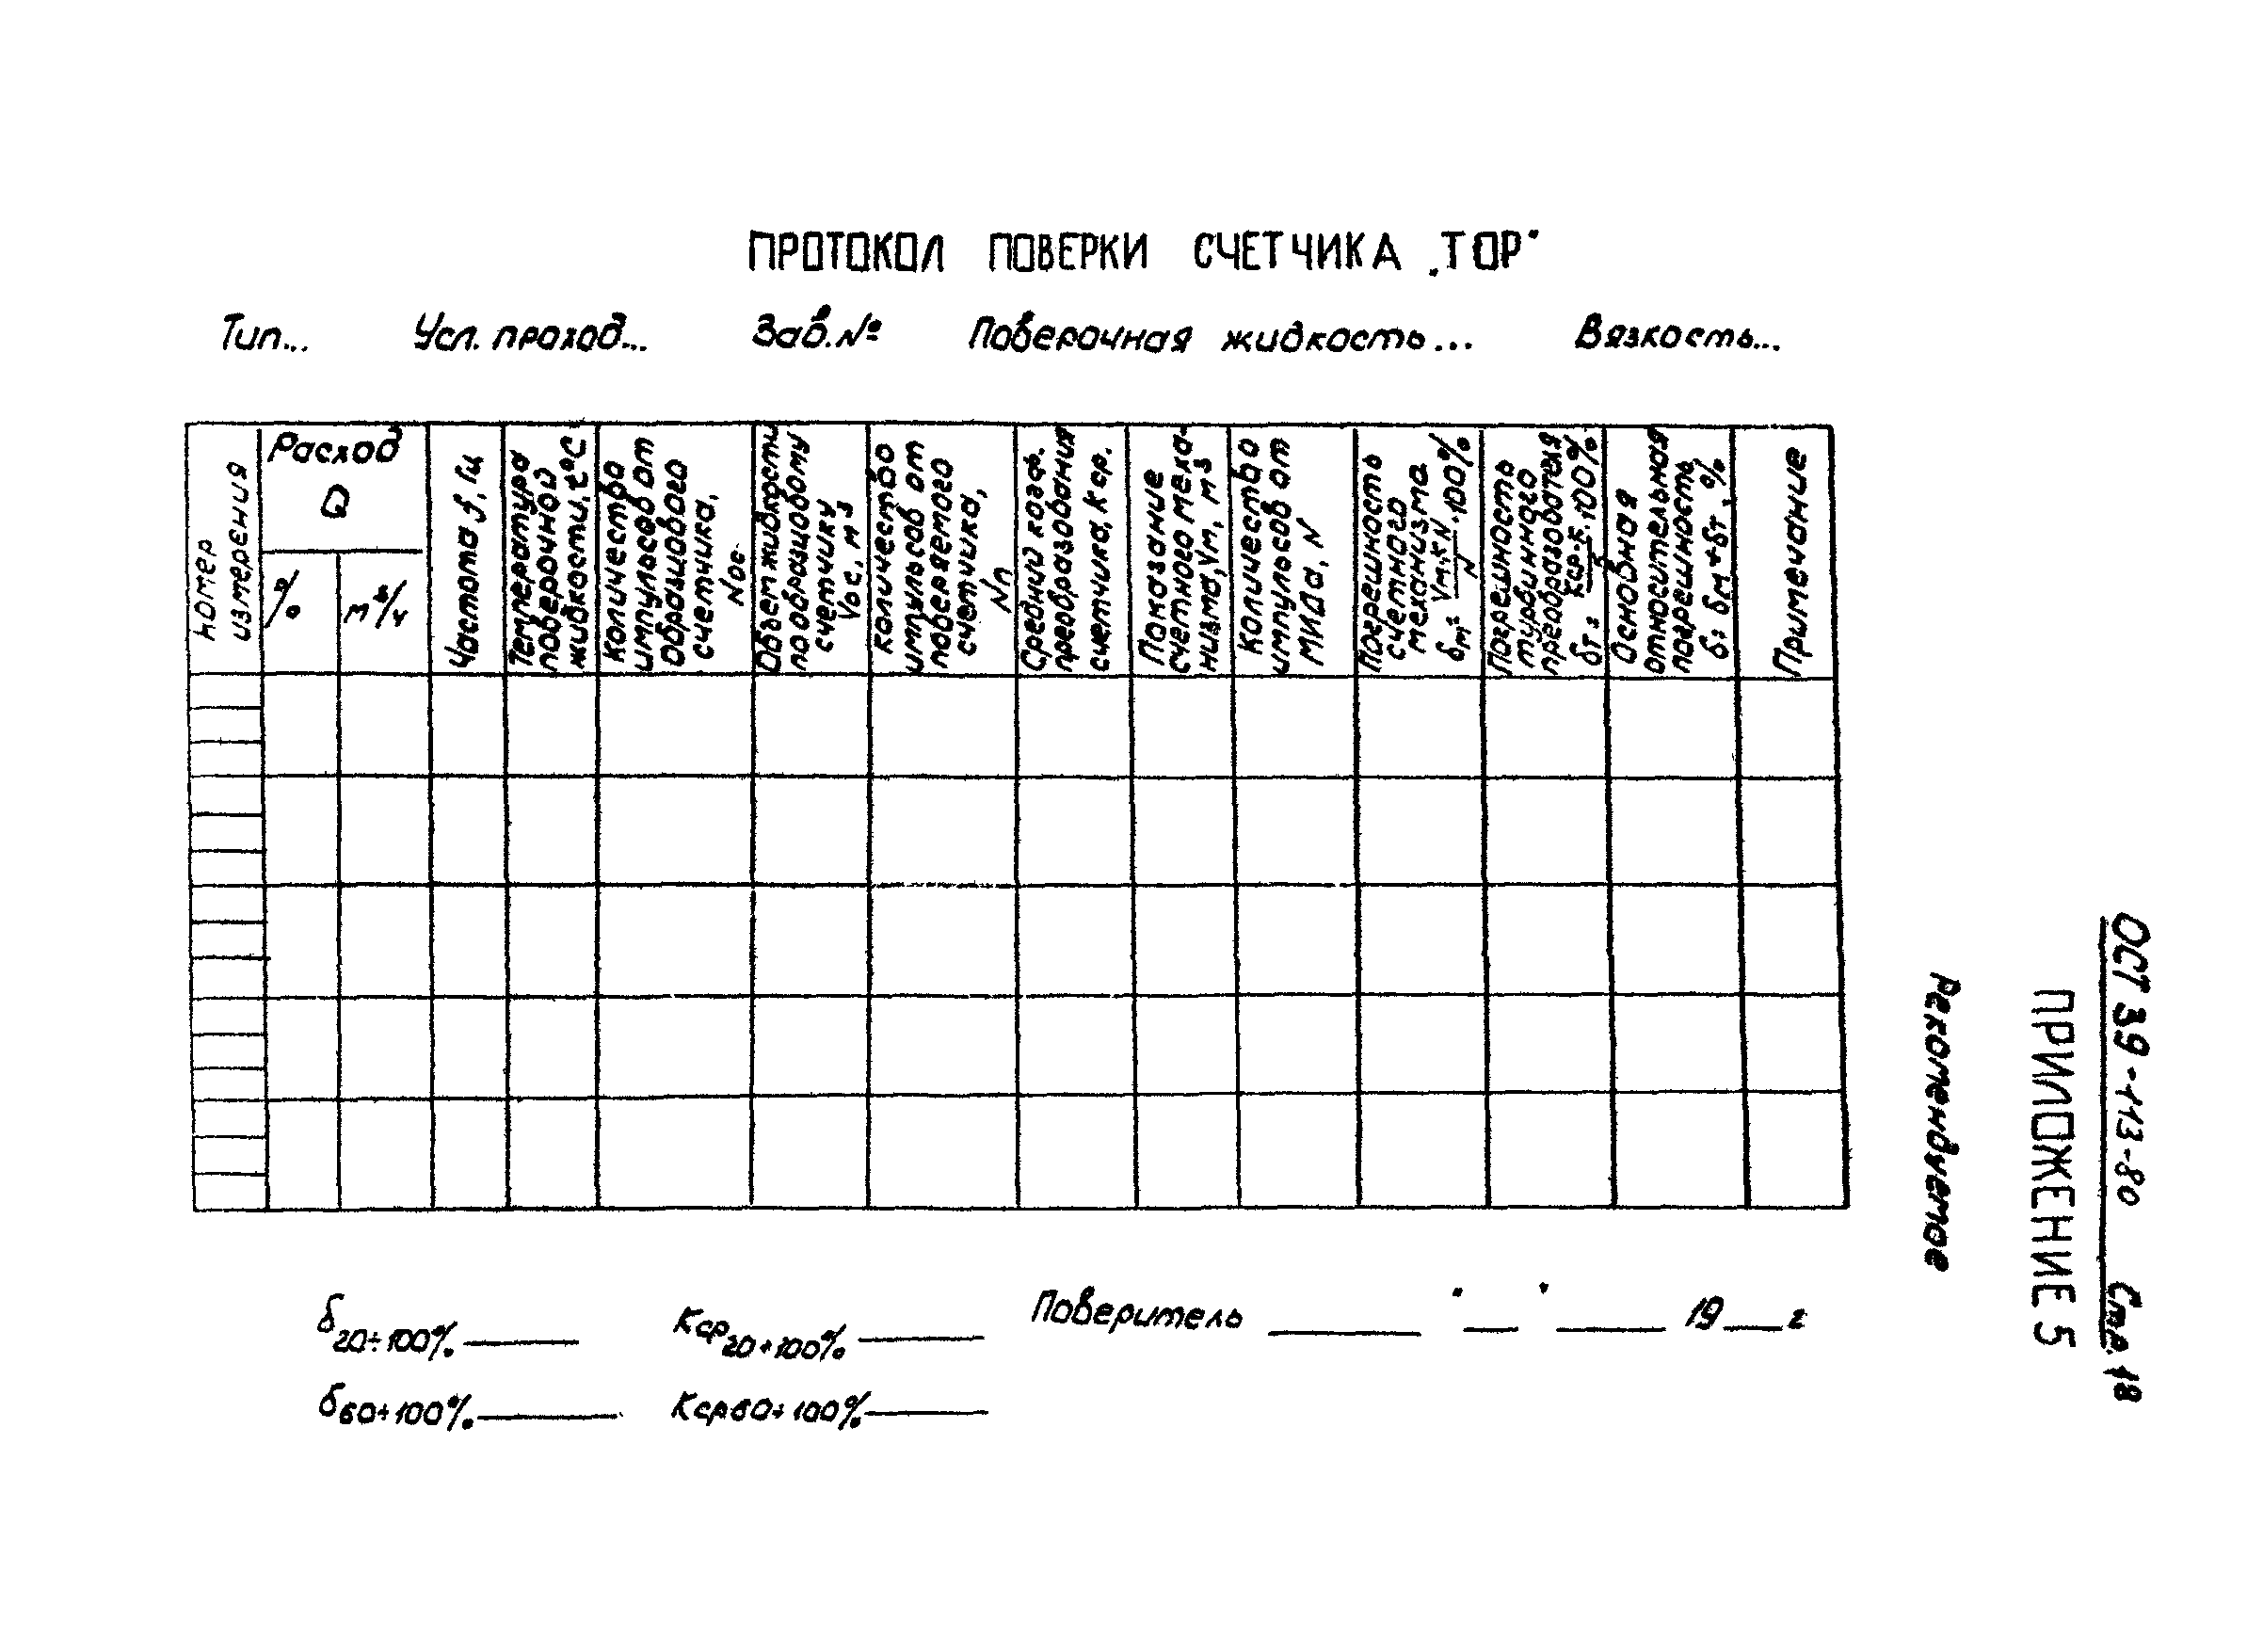 ОСТ 39-113-80 Стр. 18
ПРИЛОЖЕНИЕ 5
Рекомендуемое
ПРОТОКОЛ ПОВЕРКИ СЧЕТЧИКА „ТОР"
Тип... Усл. проход... Зав.№ Поверочная жидкость... Вязкость...
Номер
измерения
Расход
Q
%
м³/ч
Частота f, Гц
Температура
поверочной
жидкости, t°C
Количество
импульсов от
образцового
счетчика,
Nос
Объем жидкости
по образцовому
счетчику
Vос, м³
Количество
импульсов от
поверяемого
счетчика,
Nп
Средний коэф.
преобразования
счетчика, Кср.
Показание
счетного меха-
низма, Vм, м³
Количество
импульсов от
МИДа, N
Погрешность
счетного
механизма
δм= Vм.К-N / N ·100%
Погрешность
турбинного
преобразователя
δт= Кср-К / К ·100%
Основная
относительная
погрешность,
δ= δм+δт, %
Примечание
δ20÷100% ____ Кср20÷100% ____ Поверитель ____ "__" ____ 19__ г
δ60÷100% ____ Кср60÷100% ____